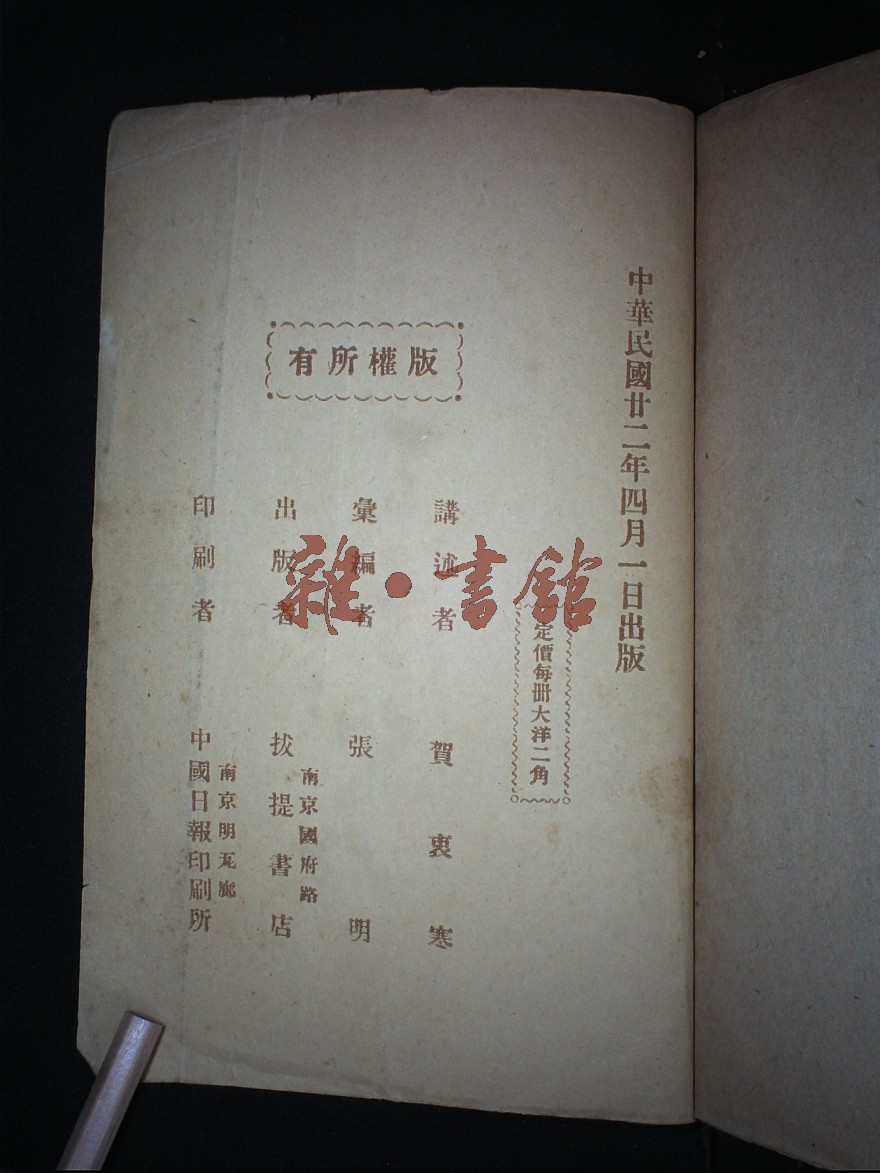 中華民國廿二年四月一日出版
定價每冊大洋二角
版權所有
講述者 賀衷寒
彙編者 張明
南京國府路
出版者 拔提書店
南京明瓦廊
印刷者 中國日報印刷所
雜·書館